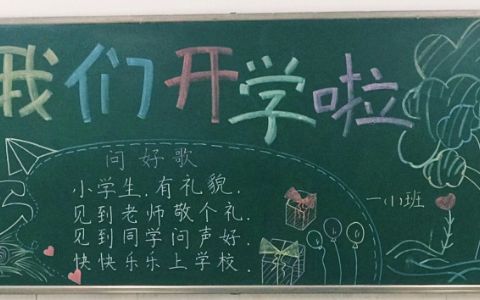 我们开学啦
问好歌
小学生,有礼貌,
见到老师敬个礼.
见到同学问声好.
快快乐乐上学校.
一(1)班